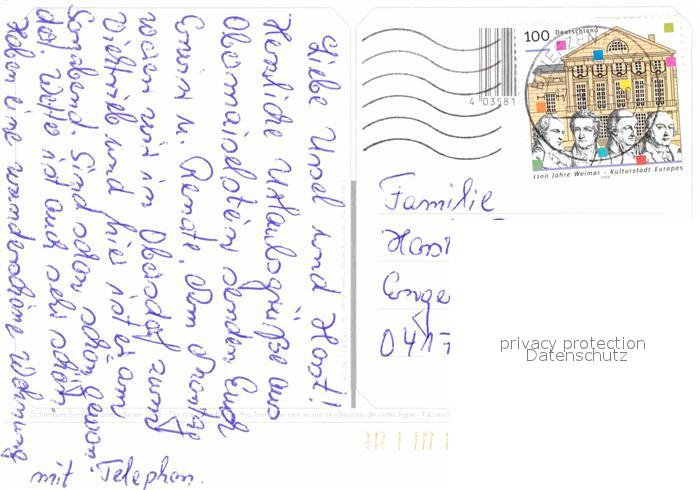 Liebe Ursel und Horst!
Herzliche Urlaubsgrüße aus
Obermaiselstein senden Euch
Erwin u. Renate. Am Montag
waren wir in Oberstdorf zum
Viehtrieb und hier ist er am
Sonnabend. Sind schon schön gewan-
dert. Wetter ist auch sehr schön.
Haben eine wunderschöne Wohnung
mit Telephon.
100 Deutschland
1100 Jahre Weimar - Kulturstadt Europas
4 03581
Familie
Horst
Enge
0417
privacy protection
Datenschutz